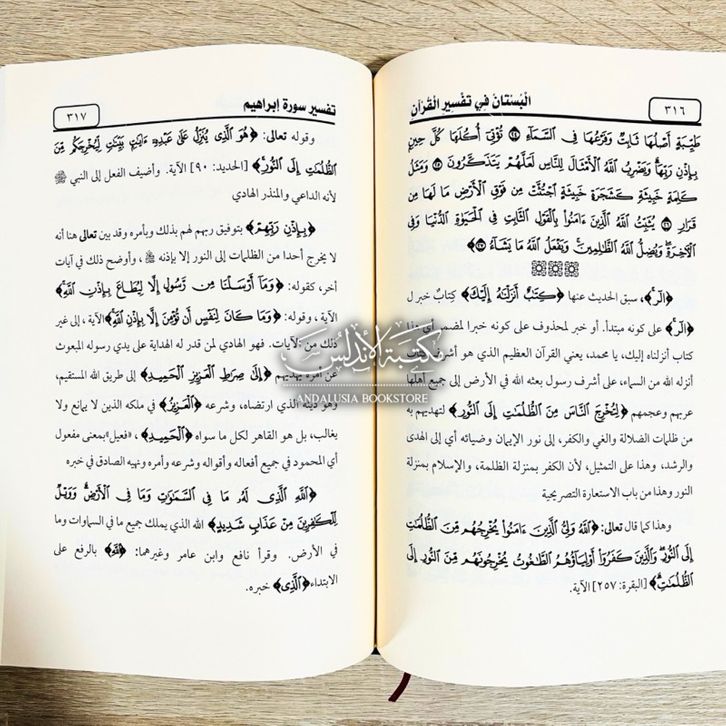 ٣١٦
البستان في تفسير القرآن
طَيِّبَةٍ أَصْلُهَا ثَابِتٌ وَفَرْعُهَا فِي السَّمَاءِ ﴿٢٤﴾ تُؤْتِي أُكُلَهَا كُلَّ حِينٍ
بِإِذْنِ رَبِّهَا وَيَضْرِبُ اللَّهُ الْأَمْثَالَ لِلنَّاسِ لَعَلَّهُمْ يَتَذَكَّرُونَ ﴿٢٥﴾ وَمَثَلُ
كَلِمَةٍ خَبِيثَةٍ كَشَجَرَةٍ خَبِيثَةٍ اجْتُثَّتْ مِن فَوْقِ الْأَرْضِ مَا لَهَا مِن
قَرَارٍ ﴿٢٦﴾ يُثَبِّتُ اللَّهُ الَّذِينَ ءَامَنُوا بِالْقَوْلِ الثَّابِتِ فِي الْحَيَاةِ الدُّنْيَا وَفِي
الْآخِرَةِ وَيُضِلُّ اللَّهُ الظَّالِمِينَ وَيَفْعَلُ اللَّهُ مَا يَشَاءُ ﴿٢٧﴾
﴿الٓر﴾، سبق الحديث عنها ﴿كِتَٰبٌ أَنزَلْنَٰهُ إِلَيْكَ﴾ كتابٌ خبر ل
﴿الٓر﴾ على كونه مبتدأ. أو خبر لمحذوف على كونه خبرا لمضمر أي هذا
كتاب أنزلناه إليك، يا محمد، يعني القرآن العظيم الذي هو أشرف كتاب
أنزله الله من السماء، على أشرف رسول بعثه الله في الأرض إلى جميع أهلها
عربهم وعجمهم ﴿لِتُخْرِجَ النَّاسَ مِنَ الظُّلُمَٰتِ إِلَى النُّورِ﴾ لتهديهم به
من ظلمات الضلالة والغي والكفر، إلى نور الإيمان وضيائه أي إلى الهدى
والرشد، وهذا على التمثيل، لأن الكفر بمنزلة الظلمة، والإسلام بمنزلة
النور وهذا من باب الاستعارة التصريحية
وهذا كما قال تعالى: ﴿اللَّهُ وَلِيُّ الَّذِينَ ءَامَنُوا يُخْرِجُهُم مِّنَ الظُّلُمَٰتِ
إِلَى النُّورِ وَالَّذِينَ كَفَرُوا أَوْلِيَاؤُهُمُ الطَّٰغُوتُ يُخْرِجُونَهُم مِّنَ النُّورِ إِلَى
الظُّلُمَٰتِ﴾ [البقرة: ٢٥٧] الآية.
تفسير سورة إبراهيم
٣١٧
وقوله تعالى: ﴿هُوَ الَّذِي يُنَزِّلُ عَلَىٰ عَبْدِهِ ءَايَٰتٍ بَيِّنَٰتٍ لِّيُخْرِجَكُم مِّنَ
الظُّلُمَٰتِ إِلَى النُّورِ﴾ [الحديد: ٩٠] الآية. وأضيف الفعل إلى النبي ﷺ
لأنه الداعي والمنذر الهادي
﴿بِإِذْنِ رَبِّهِمْ﴾ بتوفيق ربهم لهم بذلك وبأمره وقد بين تعالى هنا أنه
لا يخرج أحدا من الظلمات إلى النور إلا بإذنه ، وأوضح ذلك في آيات
أخر، كقوله: ﴿وَمَا أَرْسَلْنَا مِن رَّسُولٍ إِلَّا لِيُطَاعَ بِإِذْنِ اللَّهِ﴾
الآية ، وقوله: ﴿وَمَا كَانَ لِنَفْسٍ أَن تُؤْمِنَ إِلَّا بِإِذْنِ اللَّهِ﴾ الآية ، إلى غير
ذلك من الآيات. فهو الهادي لمن قدر له الهداية على يدي رسوله المبعوث
عن أمره يهديهم ﴿إِلَىٰ صِرَٰطِ الْعَزِيزِ الْحَمِيدِ﴾ إلى طريق الله المستقيم،
وهو دينه الذي ارتضاه، وشرعه ﴿الْعَزِيزِ﴾ في ملكه الذين لا يمانع ولا
يغالب، بل هو القاهر لكل ما سواه ﴿الْحَمِيدِ﴾، «فعيل» بمعنى مفعول
أي المحمود في جميع أفعاله وأقواله وشرعه وأمره ونهيه الصادق في خبره
﴿اللَّهِ الَّذِي لَهُ مَا فِي السَّمَٰوَٰتِ وَمَا فِي الْأَرْضِ وَوَيْلٌ
لِّلْكَٰفِرِينَ مِنْ عَذَابٍ شَدِيدٍ﴾ الله الذي يملك جميع ما في السماوات وما
في الأرض. وقرأ نافع وابن عامر وغيرهما: ﴿اللَّهُ﴾ بالرفع على
الابتداء ﴿الَّذِي﴾ خبره.
مكتبة الأندلس
ANDALUSIA BOOKSTORE